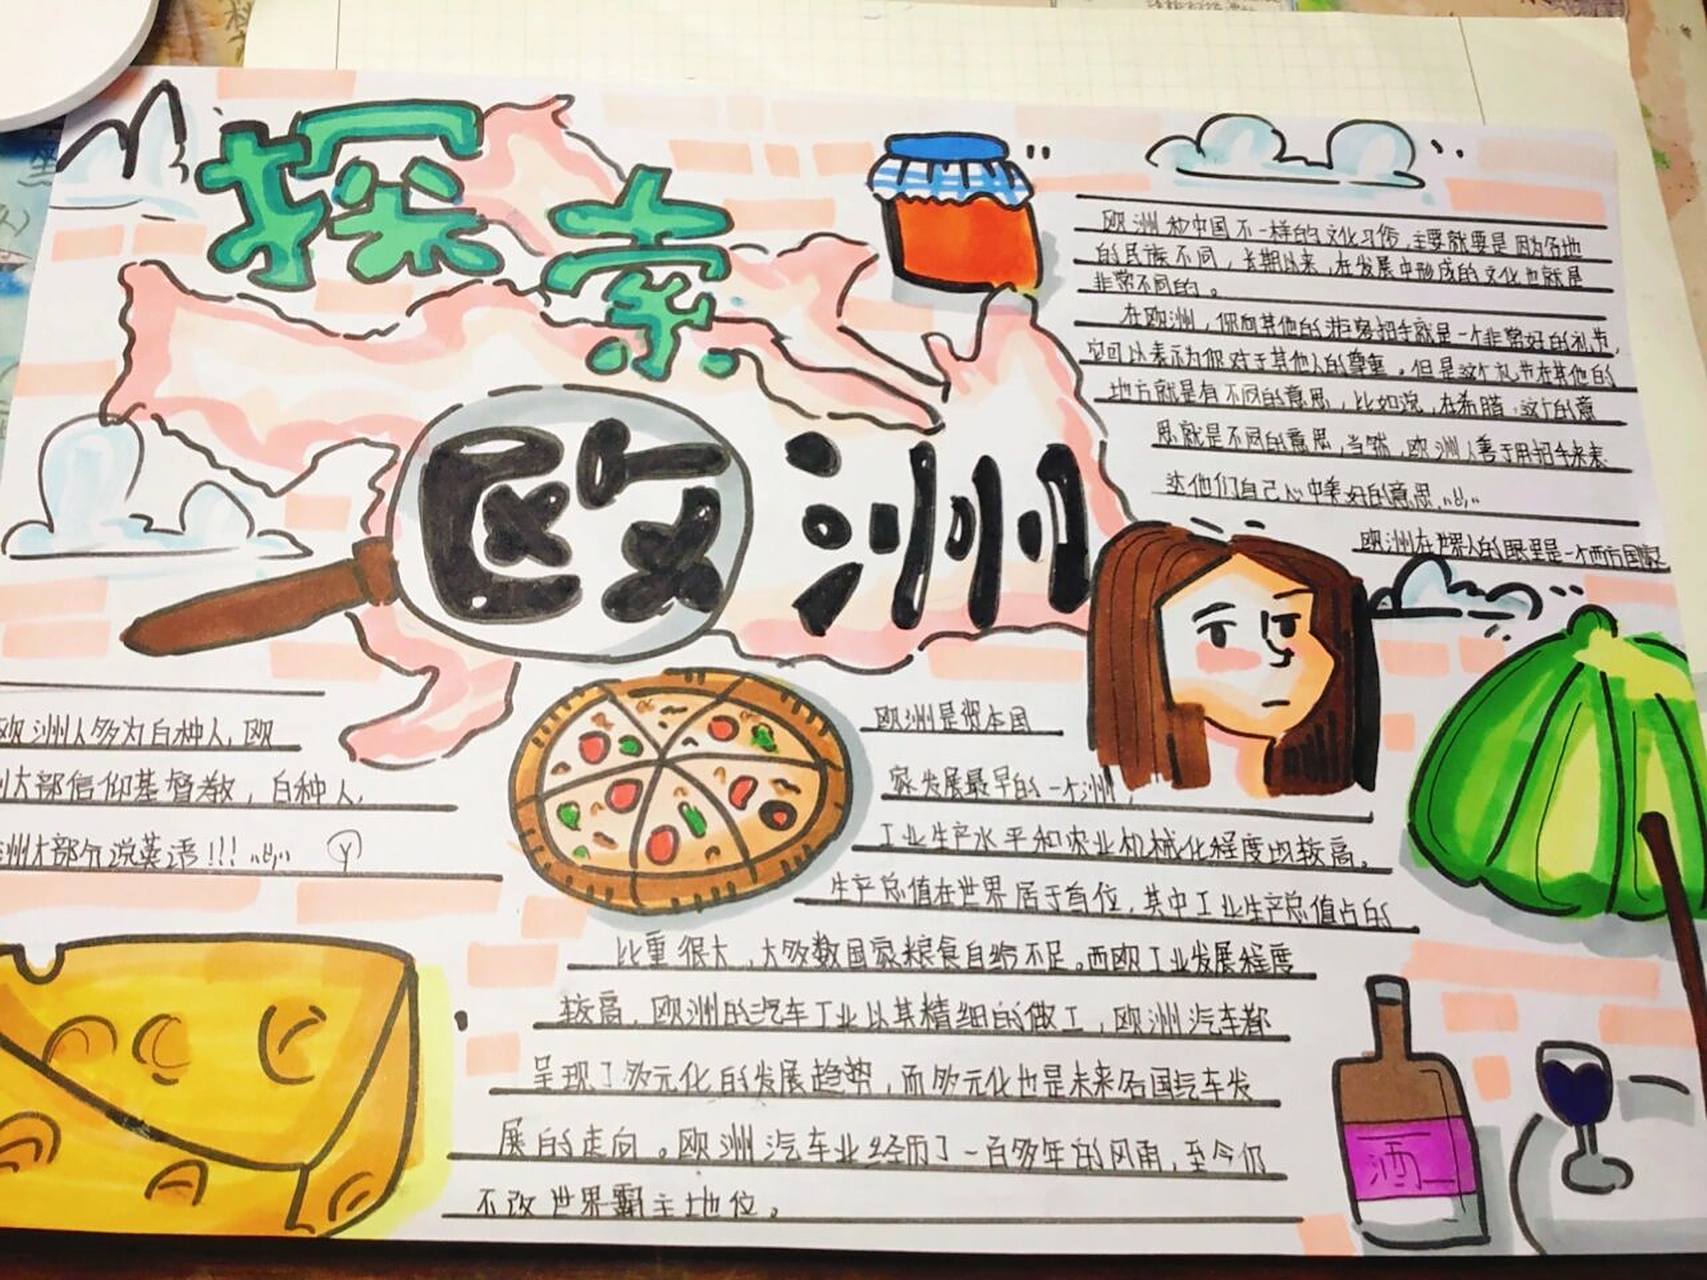 探索
欧洲
欧洲和中国不一样的文化习俗,主要就要是因为各地
的民族不同,长期以来,在发展中形成的文化也就是
非常不同的。
在欧洲,你向其他的游客招手就是一个非常好的礼节,
它可以表示为你对于其他人的尊重。但是这个礼节在其他的
地方就是有不同的意思,比如说,在希腊,这个的意
思就是不同的意思,当然,欧洲人善于用招手来表
达他们自己心中美好的意思
欧洲在世界人的眼里是一个西方国家
欧洲人多为白种人,欧
洲大部信仰基督教,白种人,
洲大部分说英语!!!
欧洲是资本国
家发展最早的一个洲,
工业生产水平和农业机械化程度均较高。
生产总值在世界居于首位,其中工业生产总值占的
比重很大,大多数国家粮食自给不足。西欧工业发展程度
较高,欧洲的汽车工业以其精细的做工,欧洲汽车都
呈现了多元化的发展趋势,而多元化也是未来各国汽车发
展的走向。欧洲汽车业经历了一百多年的风雨,至今仍
不改世界霸主地位。
酒